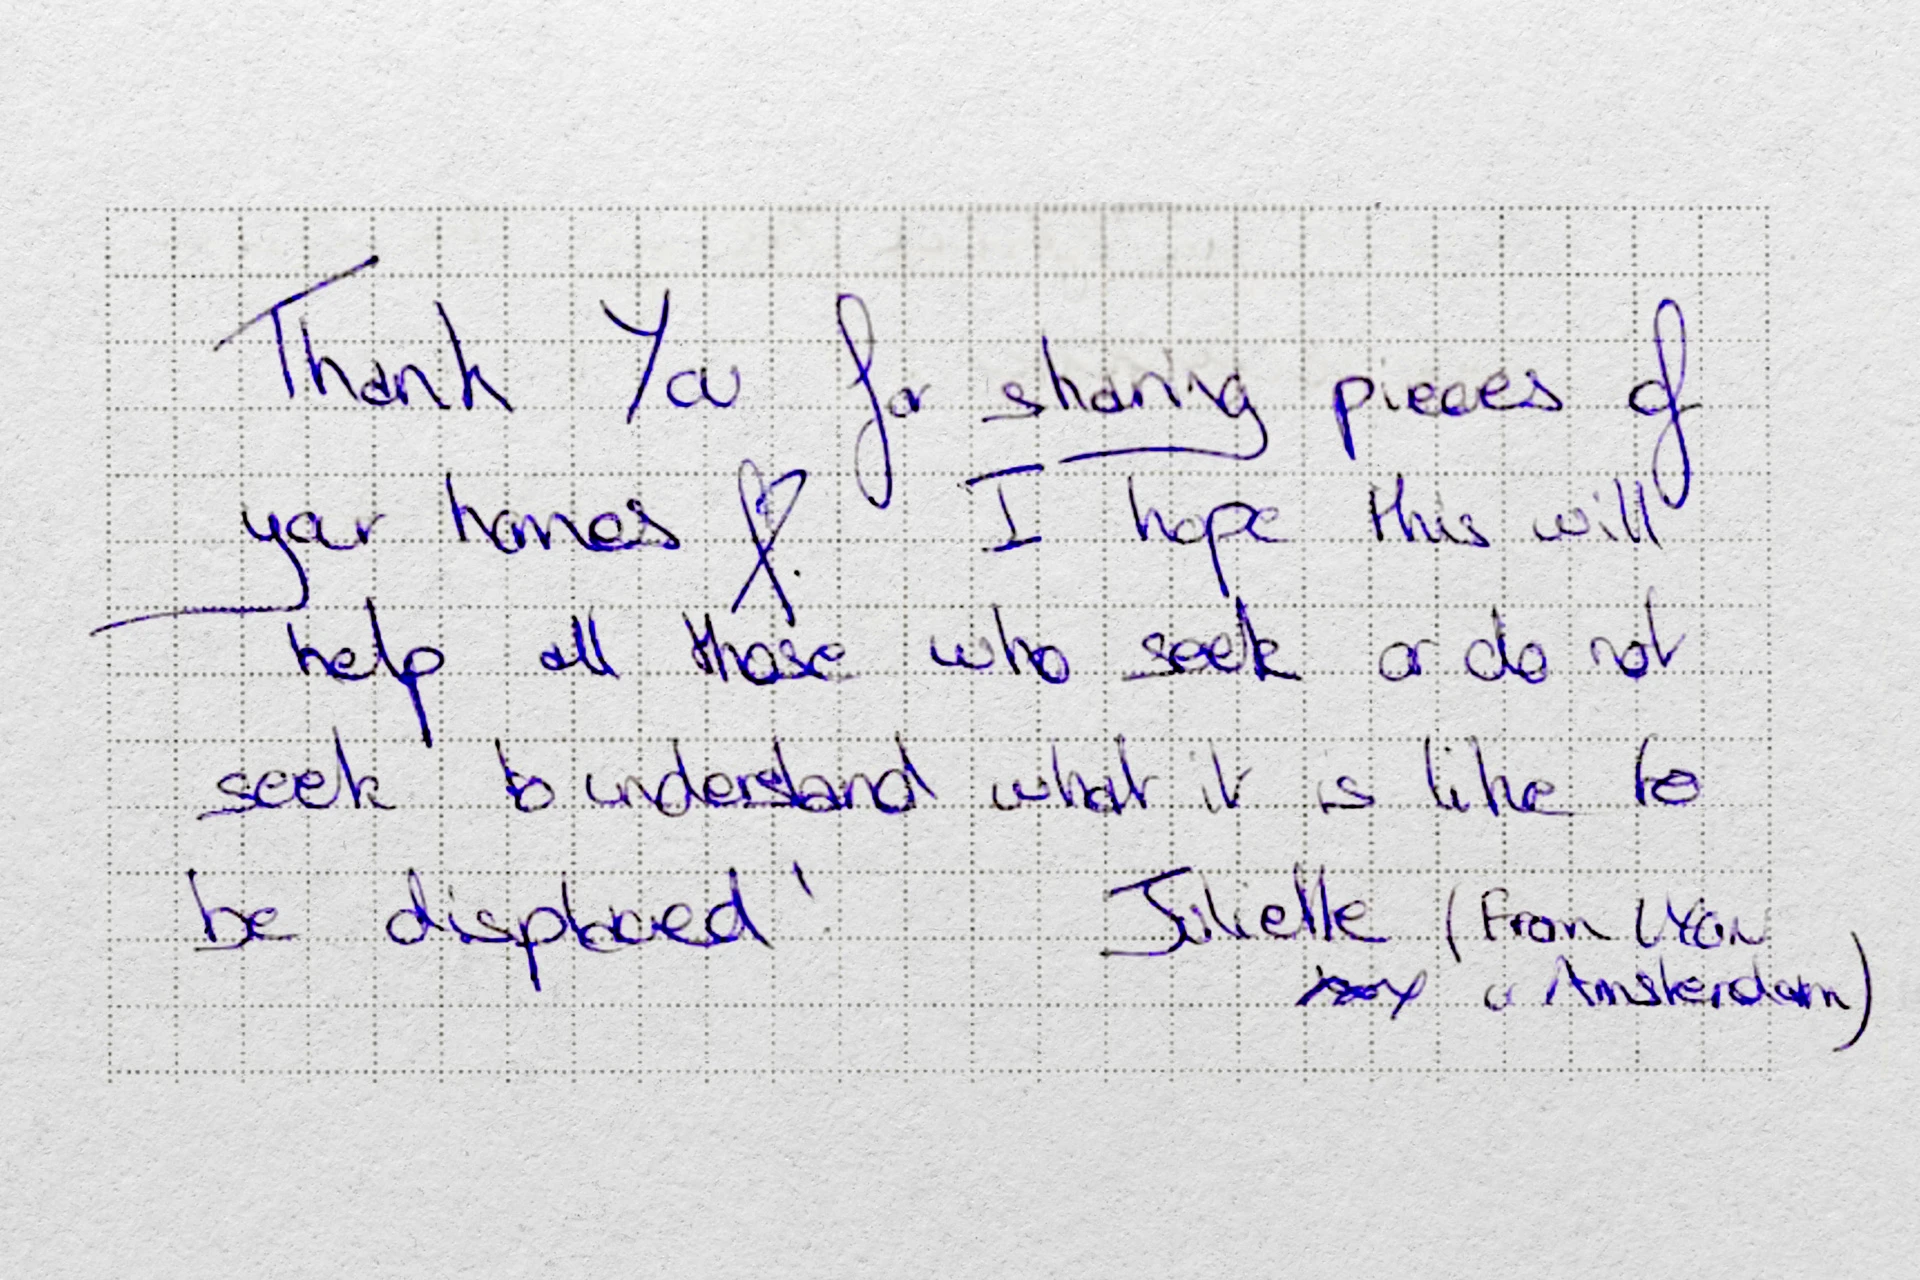 Thank You for sharing pieces of
your homes &. I hope this will
help all those who seek or do not
seek to understand what it is like to
be displaced!
Juliette (From LYon
Amsterdam)